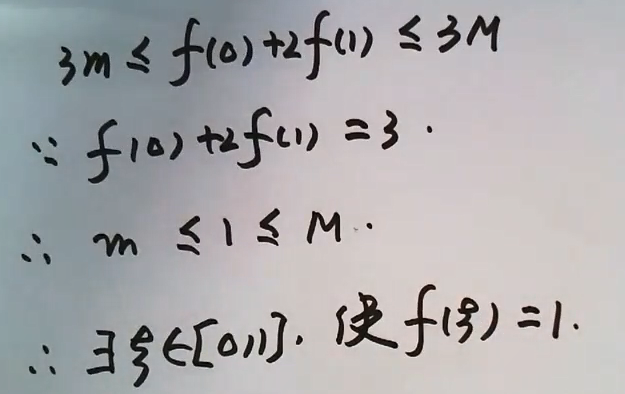 3m ≤ f(0)+2f(1) ≤ 3M
∵ f(0)+2f(1)=3.
∴ m ≤ 1 ≤ M.
∴ ∃ξ∈[0,1]. 使 f(ξ)=1.